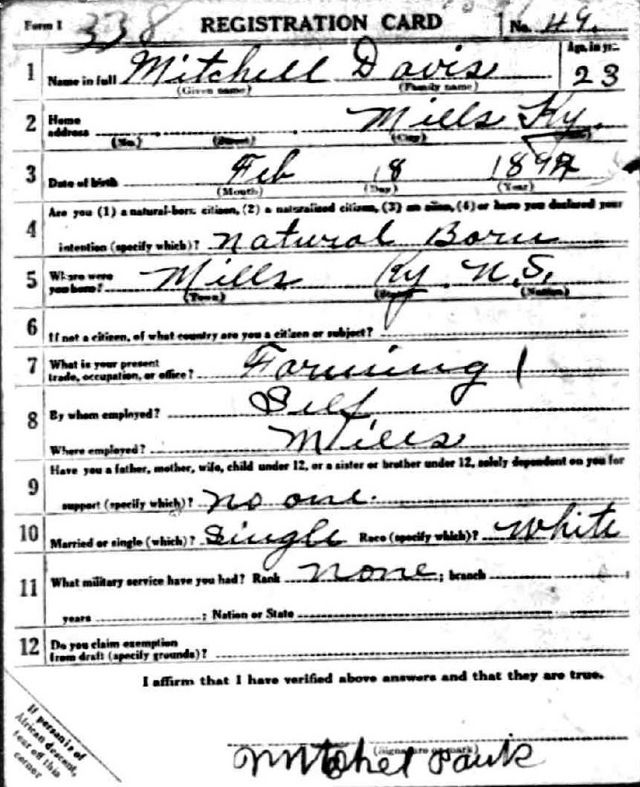 Form 1 338 REGISTRATION CARD No. 49.
1 Name in full Mitchell Davis Age, in yrs. 23
(Given name) (Family name)
2 Home address Mills Ky.
(No.) (Street) (City) (State)
3 Date of birth Feb 18
(Month) (Day) (Year)
4 Are you (1) a natural-born citizen, (2) a naturalized citizen, (3) an alien, (4) or have you declared your
intention (specify which)? natural Born
5 Where were you born? Mills Ky. U.S.
(Town) (State) (Nation)
6 If not a citizen, of what country are you a citizen or subject?
7 What is your present trade, occupation, or office? Farming 1
8 By whom employed? Self
Where employed? Mills
9 Have you a father, mother, wife, child under 12, or a sister or brother under 12, solely dependent on you for
support (specify which)? no one.
10 Married or single (which)? Single Race (specify which)? White
11 What military service have you had? Rank none; branch
years ; Nation or State
12 Do you claim exemption from draft (specify grounds)?
I affirm that I have verified above answers and that they are true.
If person is of
African descent,
tear off this
corner
(Signature or mark)